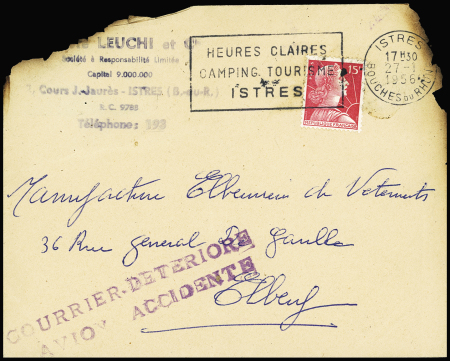 LEUCHI et Cie
Société à Responsabilité Limitée
Capital 9.000.000
Cours J.-Jaurès - ISTRES (B.-du-R.)
R.C. 9788
Téléphone: 193
HEURES CLAIRES
CAMPING. TOURISME
ISTRES
15F
REPUBLIQUE FRANÇAISE
ISTRES
17H30
27-3
1956
BOUCHES DU RHONE
Manufacture Elbeuvienne de Vetements
36 Rue general De Gaulle
Elbeuf
COURRIER-DETERIORE
AVION ACCIDENTE